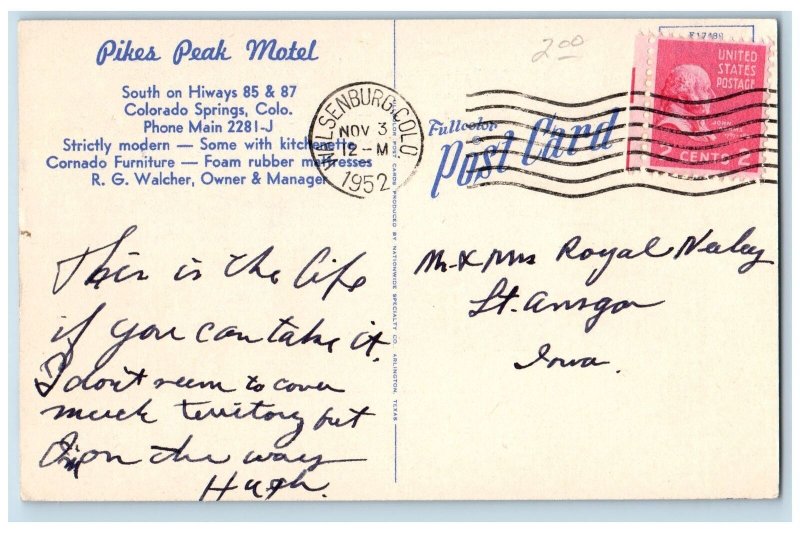 Pikes Peak Motel
South on Hiways 85 & 87
Colorado Springs, Colo.
Phone Main 2281-J
Strictly modern — Some with kitchenette
Cornado Furniture — Foam rubber mattresses
R. G. Walcher, Owner & Manager
WALSENBURG, COLO.
NOV 3
12 — M
1952
2.00
Fullcolor
Post Card
UNITED
STATES
POSTAGE
JOHN
2 CENTS 2
POST CARDS PRODUCED BY NATIONWIDE SPECIALTY CO. ARLINGTON, TEXAS
This is the life
if you can take it.
I don't seem to cover
much territory but
I'm on the way
Hugh.
Mr & Mrs Royal Neeley
St. Ansgar
Iowa.